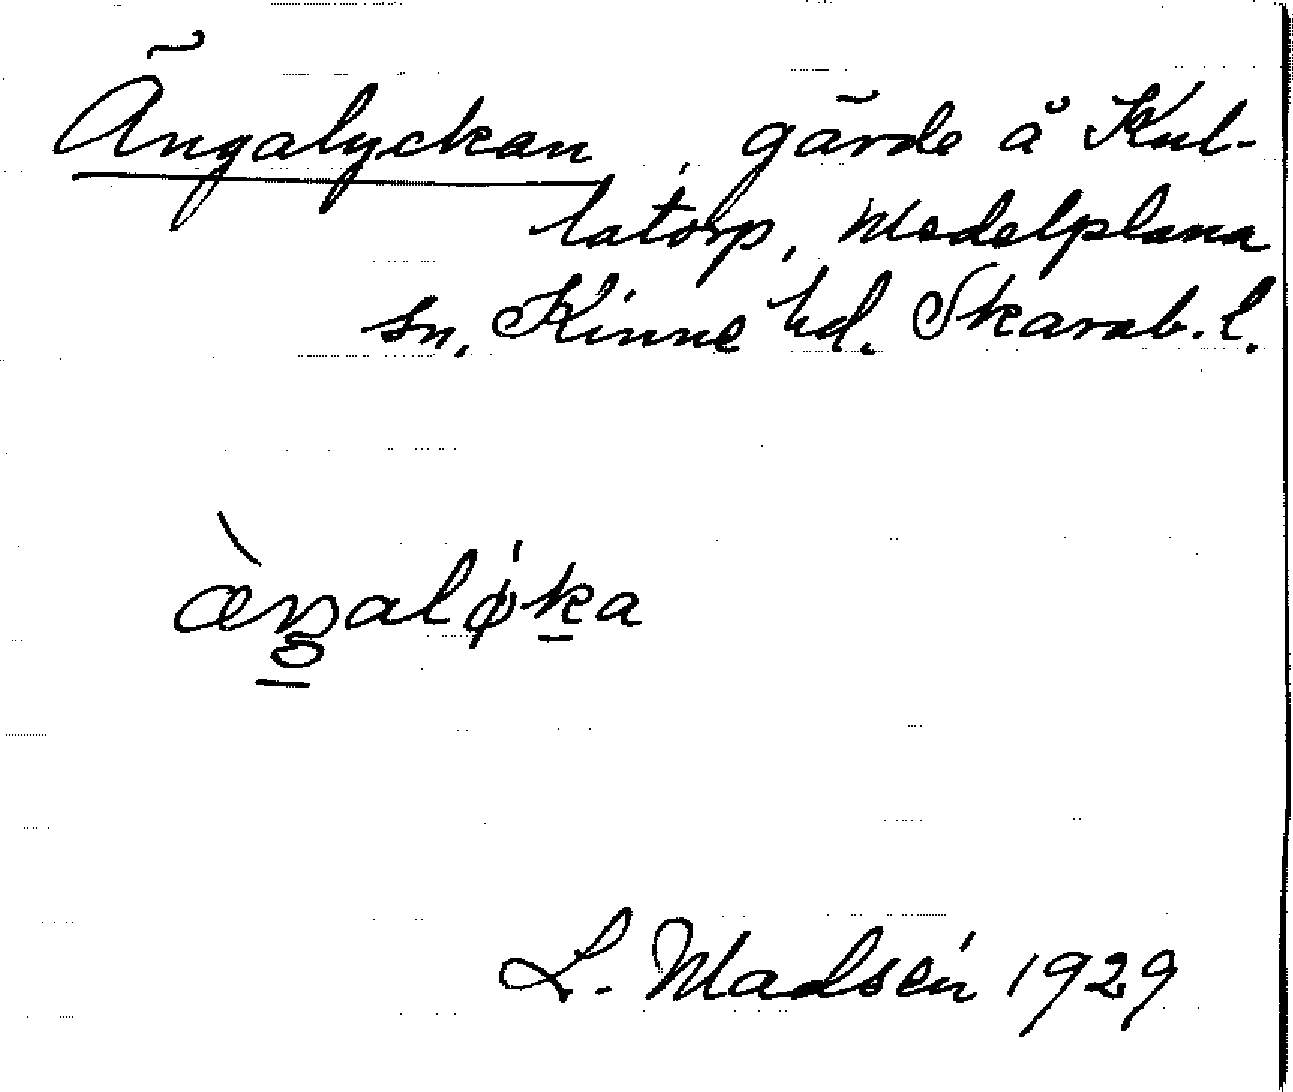 Ängalyckan, gärde å Kul-
latorp, Medelplana
sn, Kinne hd. Skarab. l.
æ̀ŋalǿka
L. Madsén 1929